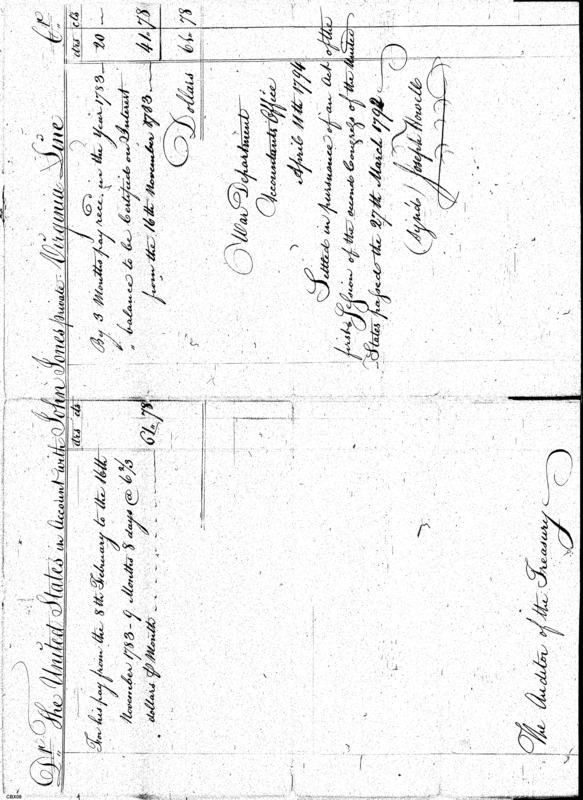 Dr. The United States in Account with John Jones private Virginia Line Cr.
drs cts
For his pay from the 8th February to the 16th
November 1783 - 9 Months 8 days @ 6 2/3
dollars ⅌ Month - - - - - 61. 78
drs cts
By 3 Months pay rece. in the Year 1783 - 20 -
" balance to be Certified on Interest
from the 16th November 1783 - 41. 78
Dollars 61. 78
War Department
Accountants Office
April 11th 1794
Settled in pursuance of an Act of the
first Session of the second Congress of the United
States passed the 27th March 1792
(Signed) Joseph Howell
The Auditor of the Treasury
CBX09